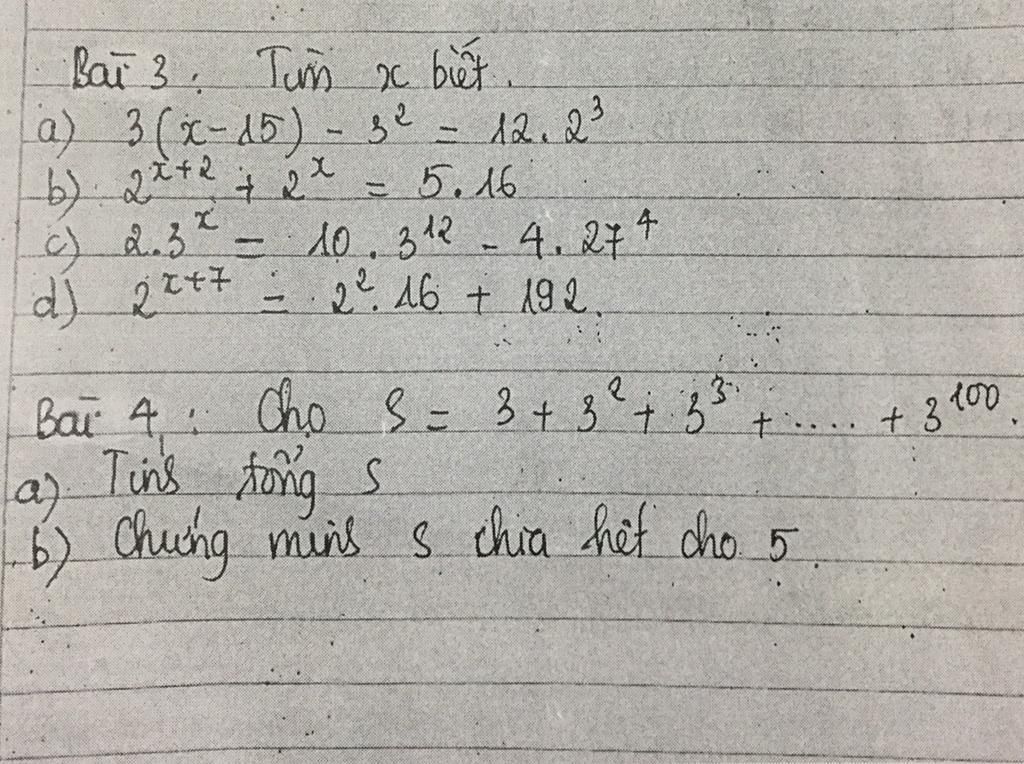 Bài 3 : Tìm x biết.
a) 3(x-15) - 3² = 12.2³
b) 2ˣ⁺² + 2ˣ = 5.16
c) 2.3ˣ = 10.3¹² - 4.27⁴
d) 2ˣ⁺⁷ = 2².16 + 192.
Bài 4 : Cho S = 3 + 3² + 3³ + .... + 3¹⁰⁰.
a) Tính tổng S
b) Chứng minh S chia hết cho 5